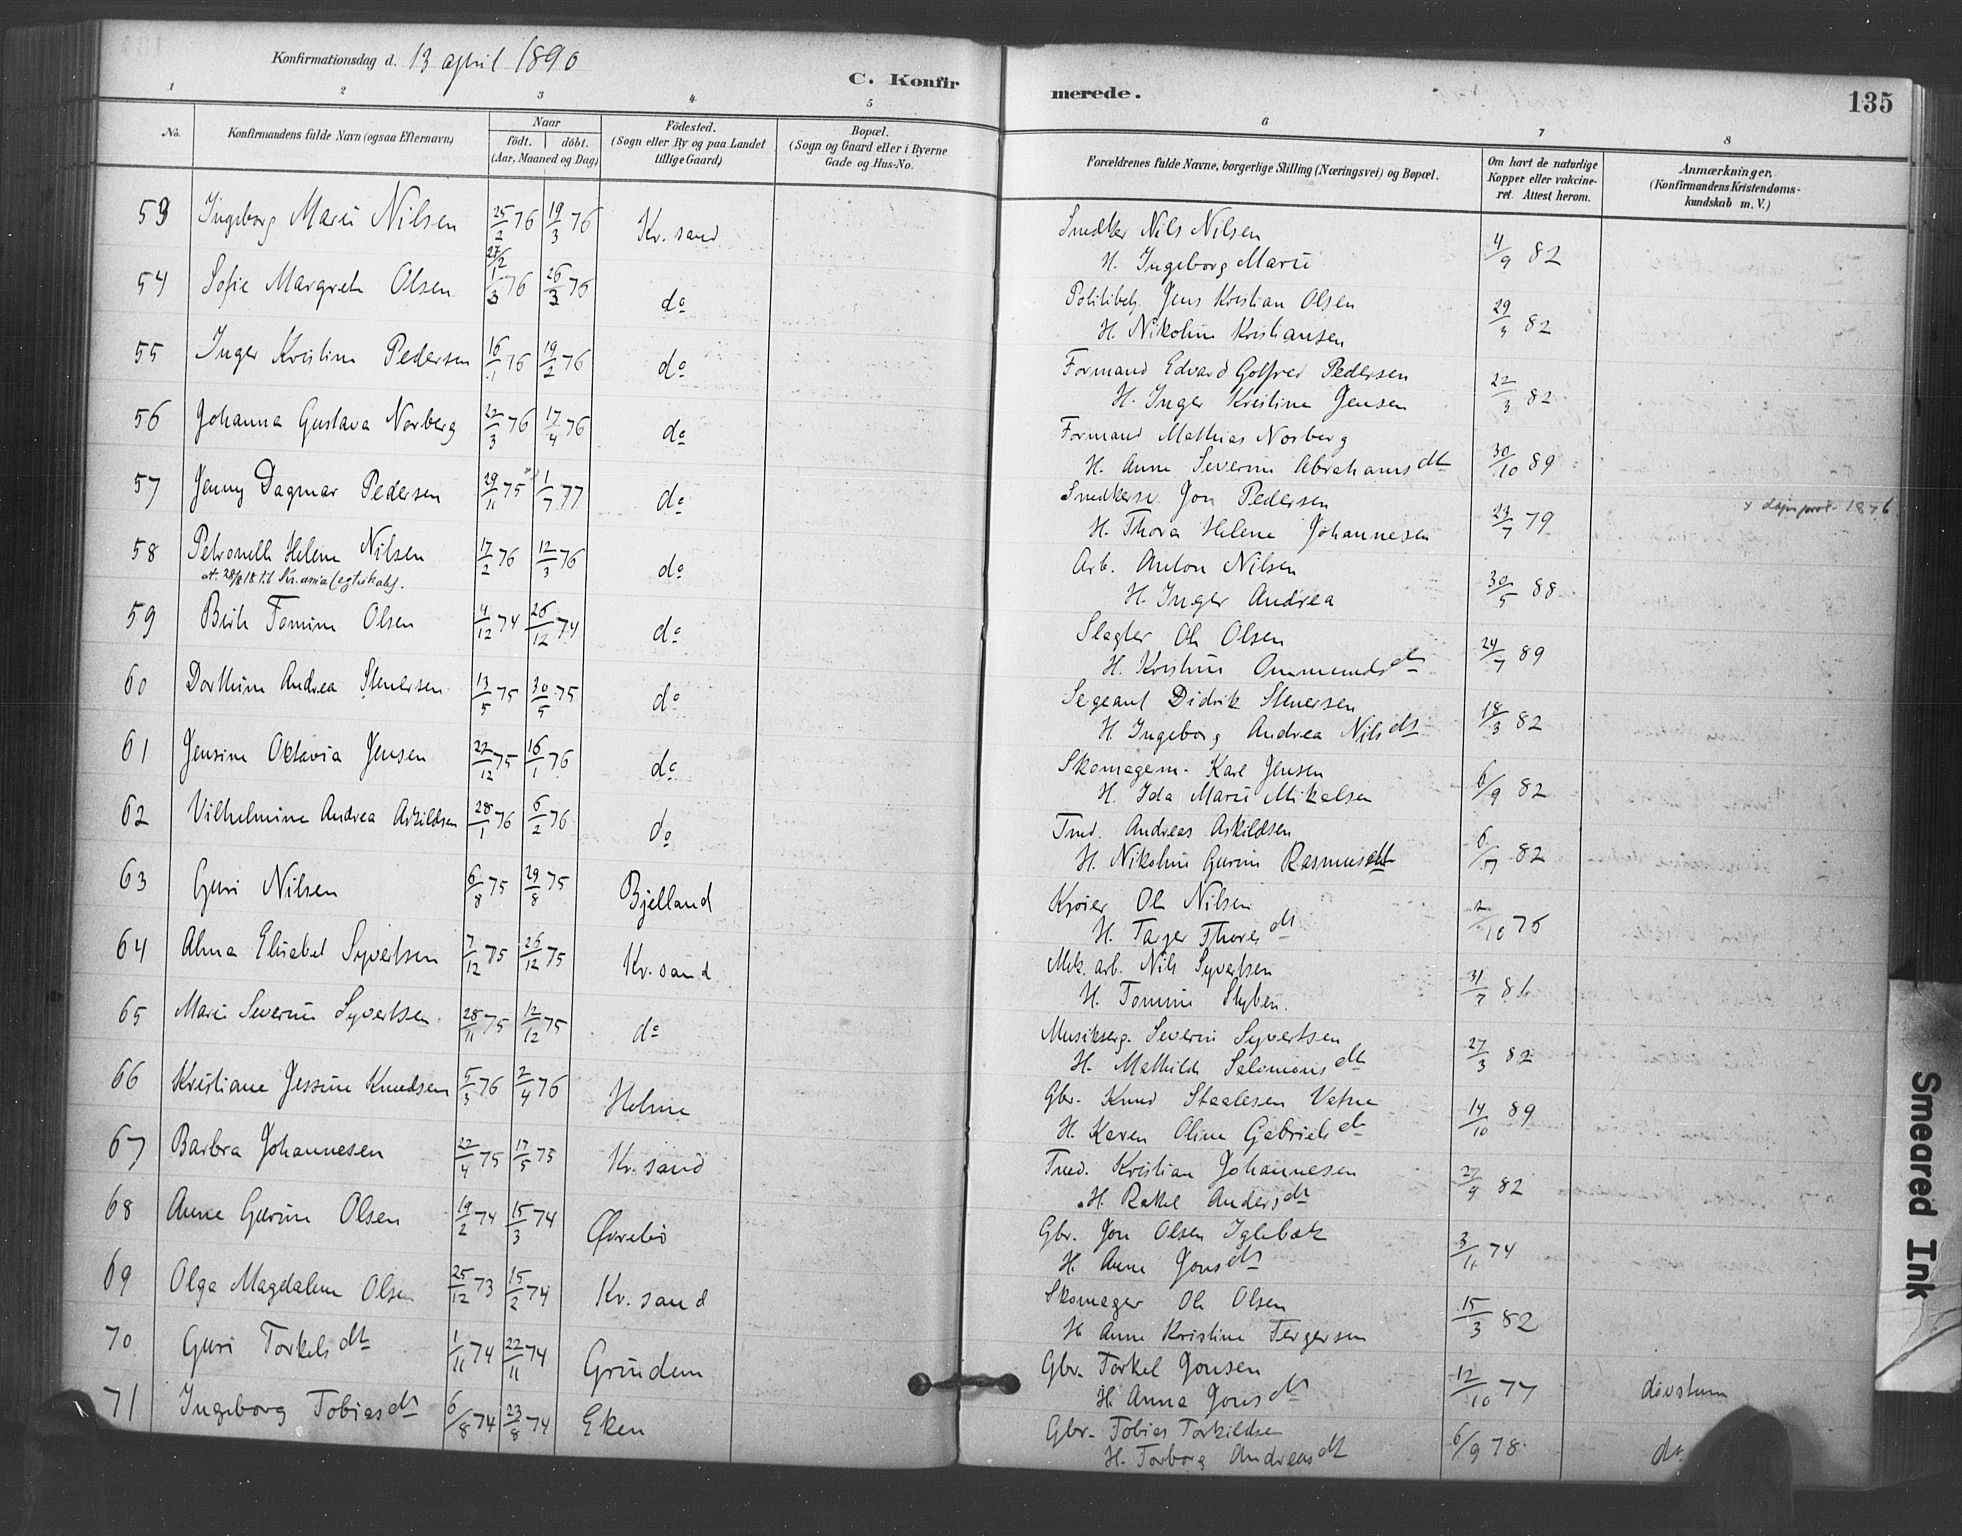 Konfirmationsdag d. 13 april 1890
C. Konfir
merede.
135
1 2 3 4 5 6 7 8
No.
Konfirmandens fulde Navn (ogsaa Efternavn)
Naar
födt. döbt.
(Aar, Maaned og Dag)
Födested.
(Sogn eller By og paa Landet
tillige Gaard)
Bopæl.
(Sogn og Gaard eller i Byerne
Gade og Hus-No.
Forældrenes fulde Navne, borgerlige Stilling (Næringsvei) og Bopæl.
Om havt de naturlige
Kopper eller vakcine-
ret. Attest herom.
Anmærkninger.
(Konfirmandens Kristendoms-
kundskab m. V.)
53 Ingeborg Marie Nilsen 25/2 76 19/3 76 Kr. sand Snedker Nils Nilsen
H. Ingeborg Marie 4/9 82
27/2
54 Sofie Margrete Olsen 1/3 76 26/3 76 do Politibetj. Jens Kristian Olsen
H. Nikoline Kristiansen 29/3 82
55 Inger Kristine Pedersen 16/1 76 19/2 76 do Formand Edvard Gotfred Pedersen
H. Inger Kristine Jensen 22/3 82
56 Johanna Gustava Norberg 22/3 76 17/4 76 do Formand Mathias Norberg
H. Anne Severine Abrahamsdt 30/10 89
57 Jenny Dagmar Pedersen 29/11 75 1/7 77 do Snedkersv. Jon Pedersen
H. Thora Helene Johannesen 23/7 79 x døpeprot. 1876
58 Petronelle Helene Nilsen 17/2 76 12/3 76 do Arb. Anton Nilsen
at. 28/8 18 til Kr.ania (egteskab).
H. Inger Andrea 30/5 88
59 Berte Tomine Olsen 4/12 74 26/12 74 do Slagter Ole Olsen
H. Kristine Ommundsdt 24/7 89
60 Dorthine Andrea Stenersen 13/5 75 30/5 75 do Sergeant Didrik Stenersen
H. Ingeborg Andrea Nilsdt 18/3 82
61 Jensine Oktavia Jensen 22/12 75 16/1 76 do Skomagerm. Karl Jensen
H. Ida Marie Mikalsen 6/9 82
62 Vilhelmine Andrea Askildsen 28/1 76 6/2 76 do Tmd. Andreas Askildsen
H. Nikoline Gurine Rasmusdt 6/7 82
63 Guri Nilsen 6/8 75 29/8 75 Bjelland Kjøier Ole Nilsen
H. Tarjer Thoresdt 2/10 75
64 Alma Elisabet Syvertsen 7/12 75 26/12 75 Kr. sand Mek. arb. Nils Syvertsen
H. Tomine Styben. 31/7 81
65 Marie Severine Syvertsen. 28/11 75 12/12 75 do Musikserg. Severin Syvertsen
H. Mathilde Salomonsdt 27/3 82
66 Kristiane Jessine Knudsen 5/3 76 2/4 76 Holme Gbr. Knud Staalesen Vatne
H. Karen Oline Gabrielsdt 14/10 89
67 Barbra Johannesen 22/4 75 17/5 75 Kr. sand Tmd. Kristian Johannesen
H. Rakel Andersdt 27/9 82
68 Anne Gurine Olsen 19/2 74 15/3 74 Øvrebø Gbr. Jon Olsen Iglebæk
H. Anne Jonsdt 3/11 74
69 Olga Magdalene Olsen 25/12 73 15/2 74 Kr. sand Skomager Ole Olsen
H Anne Kristine Tergersen 15/3 82
70 Guri Torkelsdt 1/11 74 22/11 74 Grindem Gbr. Torkel Jonsen
H. Anna Jonsdt 12/10 77 døvstum
71 Ingeborg Tobiasdt 6/8 74 23/8 74 Eken Gbr. Tobias Torkildsen
H. Torborg Andreasdt 6/9 78 do.
Smeared Ink